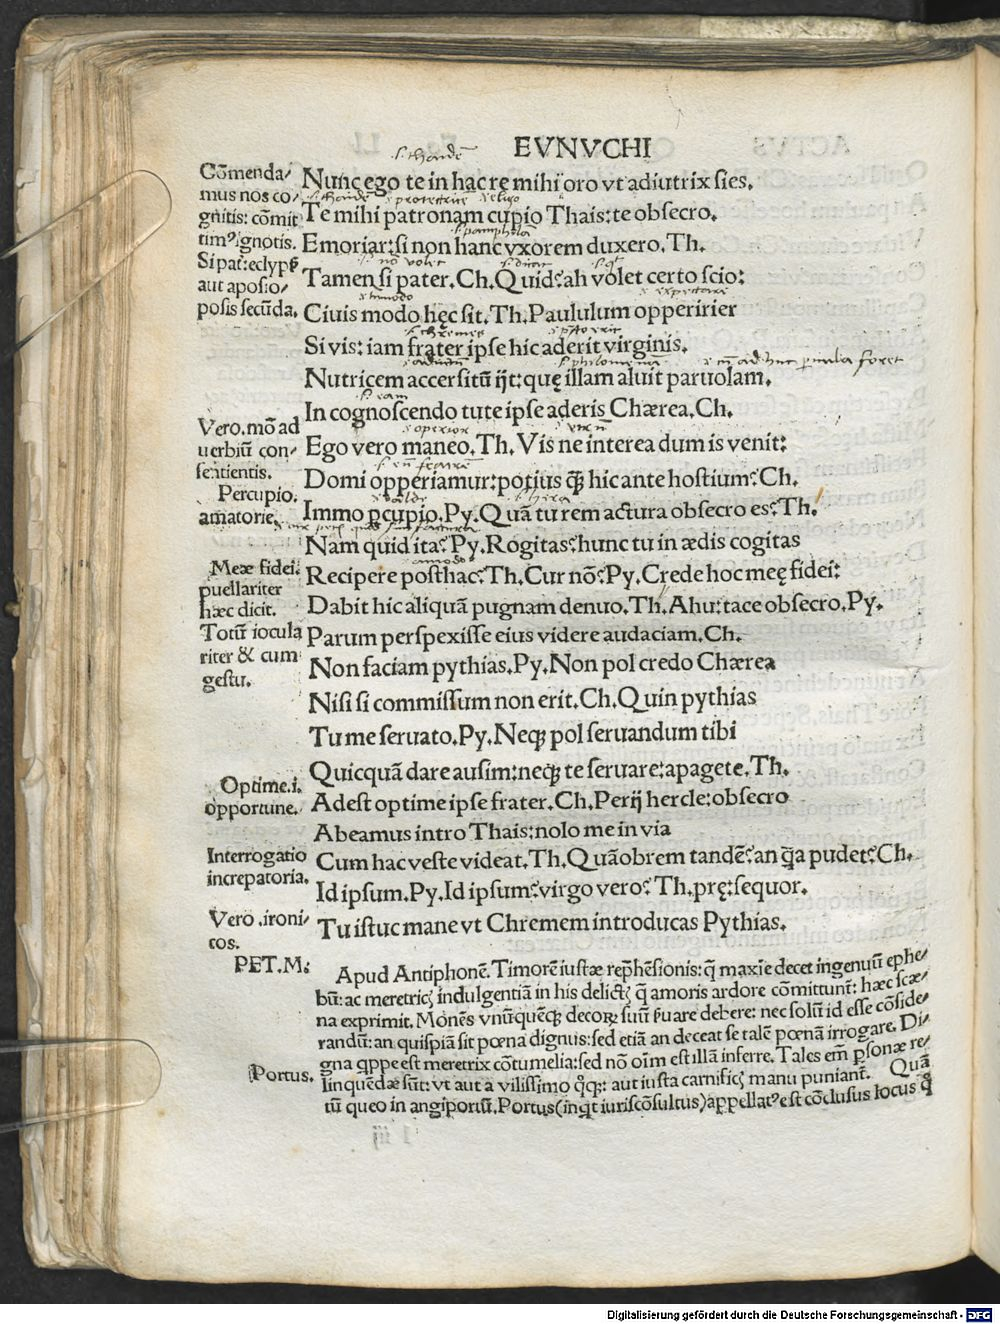 EVNVCHI
Cōmenda/
mus nos co/
gnitis: cōmit
timꝰ ignotis.
Si pat̄: eclypẜ
aut aposio/
posis secūda.
Nunc ego te in hac re mihi oro vt adiutrix sies.
Te mihi patronam cupio Thais: te obsecro.
Emoriar: si non hanc vxorem duxero. Th.
Tamen si pater. Ch. Quid? ah volet certo scio:
Ciuis modo hęc sit. Th. Paululum opperirier
Si vis: iam frater ipse hic aderit virginis.
Nutricem accersitū ijt: quę illam aluit paruolam.
In cognoscendo tute ipse aderis Chærea. Ch.
Vero. mō ad
uerbiū con-
sentientis.
Percupio.
amatorie.
Ego vero maneo. Th. Vis ne interea dum is venit:
Domi opperiamur: potius q̄ȝ hic ante hostium? Ch.
Immo ꝑcupio. Py. Quā tu rem actura obsecro es? Th.
Nam quid ita? Py. Rogitas? hunc tu in ædis cogitas
Meæ fidei:
puellariter
hæc dicit.
Totū iocula
riter & cum
gestu.
Recipere posthac? Th. Cur nō? Py. Crede hoc meę fidei:
Dabit hic aliquā pugnam denuo. Th. Ahu: tace obsecro. Py.
Parum perspexisse eius videre audaciam. Ch.
Non faciam pythias. Py. Non pol credo Chærea
Nisi si commissum non erit. Ch. Quin pythias
Tu me seruato. Py. Neqȝ pol seruandum tibi
Quicquā dare ausim: neqȝ te seruare: apagete. Th.
Optime.i.
opportune.
Adest optime ipse frater. Ch. Perij hercle: obsecro
Abeamus intro Thais: nolo me in via
Interrogatio
increpatoria.
Cum hac veste videat. Th. Quāobrem tandē? an q̄a pudet? Ch.
Id ipsum. Py. Id ipsum? virgo vero? Th. Prę: sequor.
Vero .ironi/
cos.
Tu istuc mane vt Chremem introducas Pythias.
PET.M:
Apud Antiphonē. Timorē iustæ rep̄hēsionis: q̄ maxīe decet ingenuū ephe/
bū: ac meretricꝭ indulgentiā in his delictꝭ q̄ amoris ardore cōmittunt̄: hæc scæ/
na exprimit. Monēs vnūquēqȝ decoꝝ suū ẜuare debere: nec solū id esse cōside/
randū: an quispiā sit pœna dignus: sed etiā an deceat se talē pœnā irrogare. Di/
gna qppe est meretrix cōtumelia: sed nō oīm est illā inferre. Tales em̄ ꝑsonæ re/
Portus.
linquēdæ sūt: vt aut a vilissimo qqȝ: aut iusta carnificꝭ manu puniant̄. Quā
tū queo in angiportū. Portus (inqt iuriscōsultus) appellatꝰ est cōclusus locus q̄
Digitalisierung gefördert durch die Deutsche Forschungsgemeinschaft - DFG